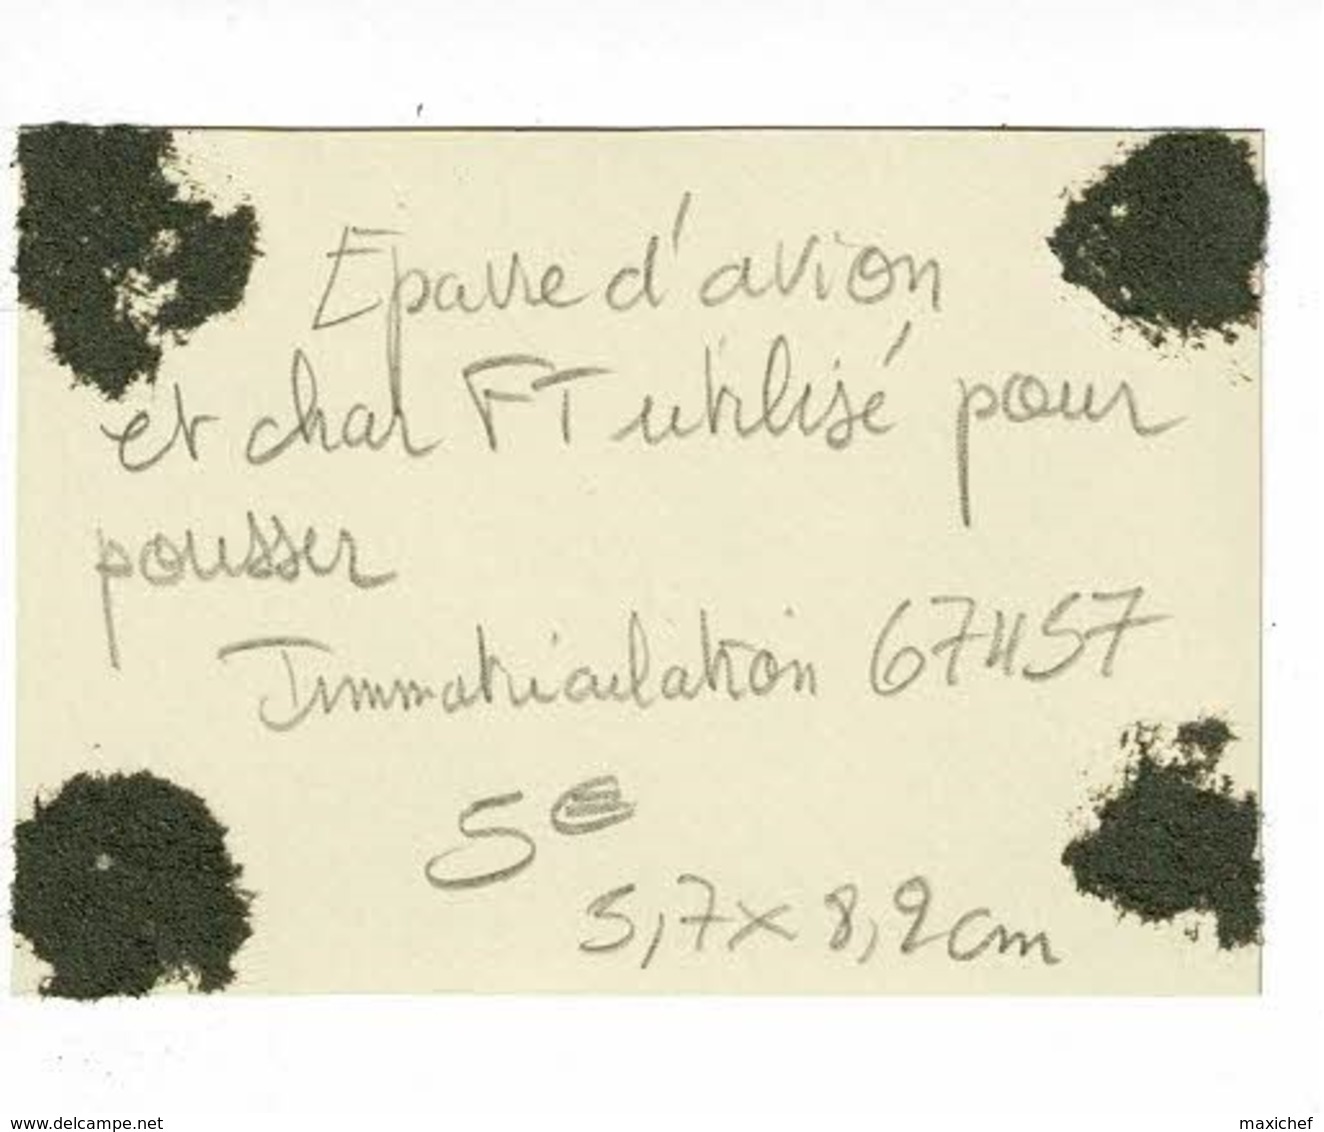 Epave d'avion
et char FT utilisé pour
pousser
Immatriculation 67457
5€
5,7 x 8,2 cm
www.delcampe.net
maxichef